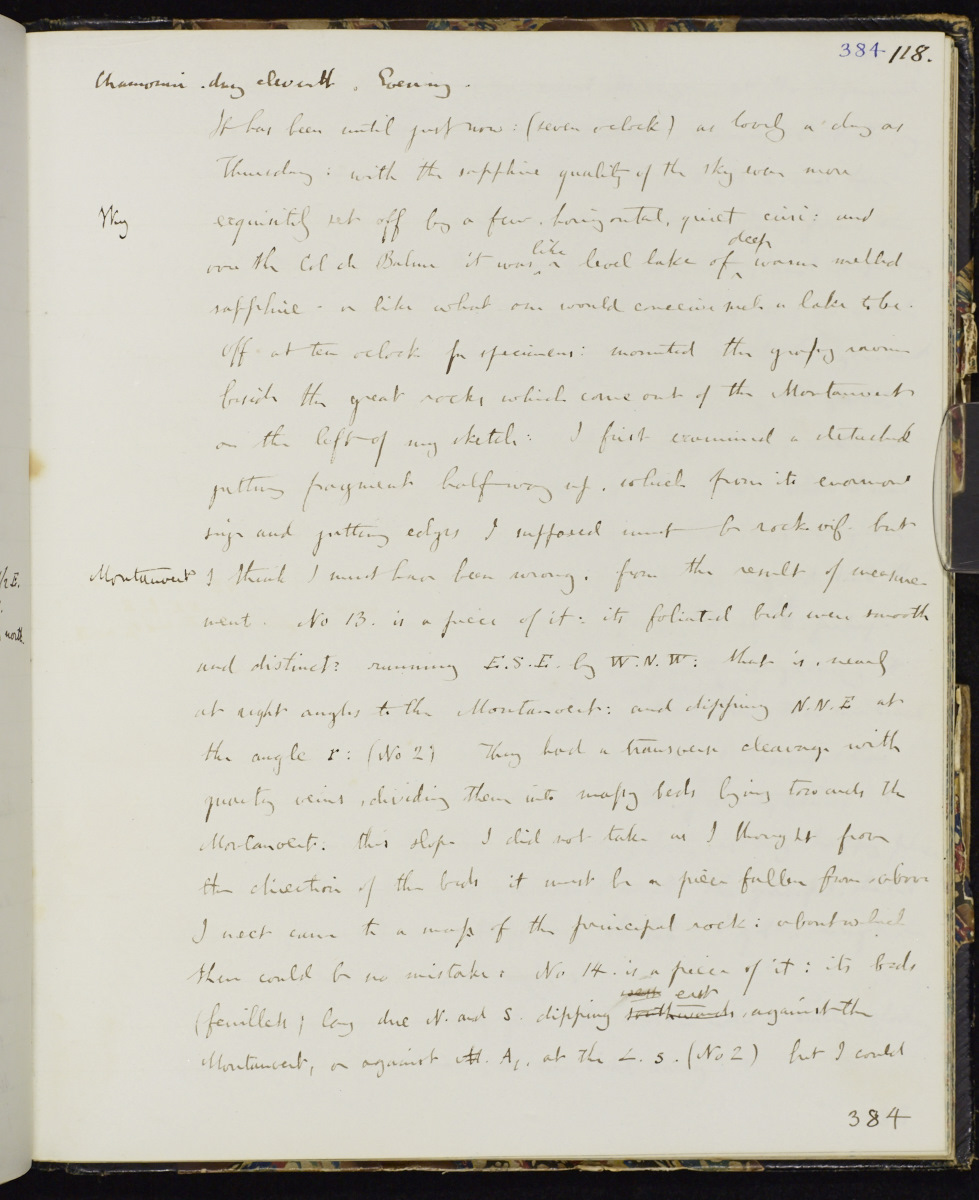 384 118.
Chamonix . day eleventh , Evening .
It has been until just now : (seven oclock) as lovely a day as
Thursday : with the sapphire quality of the sky even more
Sky exquisitely set off by a few . horizontal, quiet cirri : and
over the Col de Balme it was like a level lake of deep warm melted
sapphire - or like what one would conceive such a lake to be.
Off at ten oclock for specimens : mounted the grassy ravine
beside the great rocks which come out of the Montanvert
on the left of my sketch : I first examined a detached
jutting fragment half way up . which from its enormous
size and jutting edges I supposed must be rock vif . but
Montanvert I think I must have been wrong . from the result of measure-
ment . No 13. is a piece of it : its foliated beds were smooth
and distinct : running E.S.E. by W.N.W : that is , nearly
at right angles to the Montanvert : and dipping N.N.E at
the angle r : (No 2) They had a transverse cleavage with
quartz veins , dividing them into massy beds lying towards the
Montanvert : this slope I did not take as I thought from
the direction of the beds it must be a piece fallen from above
I next came to a mass of the principal rock : about which
there could be no mistake : No 14. is a piece of it : its beds
(feuillets) lay due N. and S. dipping southwards west east , against the
Montanvert, or against M. A,. at the L. s. (No 2) but I could
384
1/2 E.
north